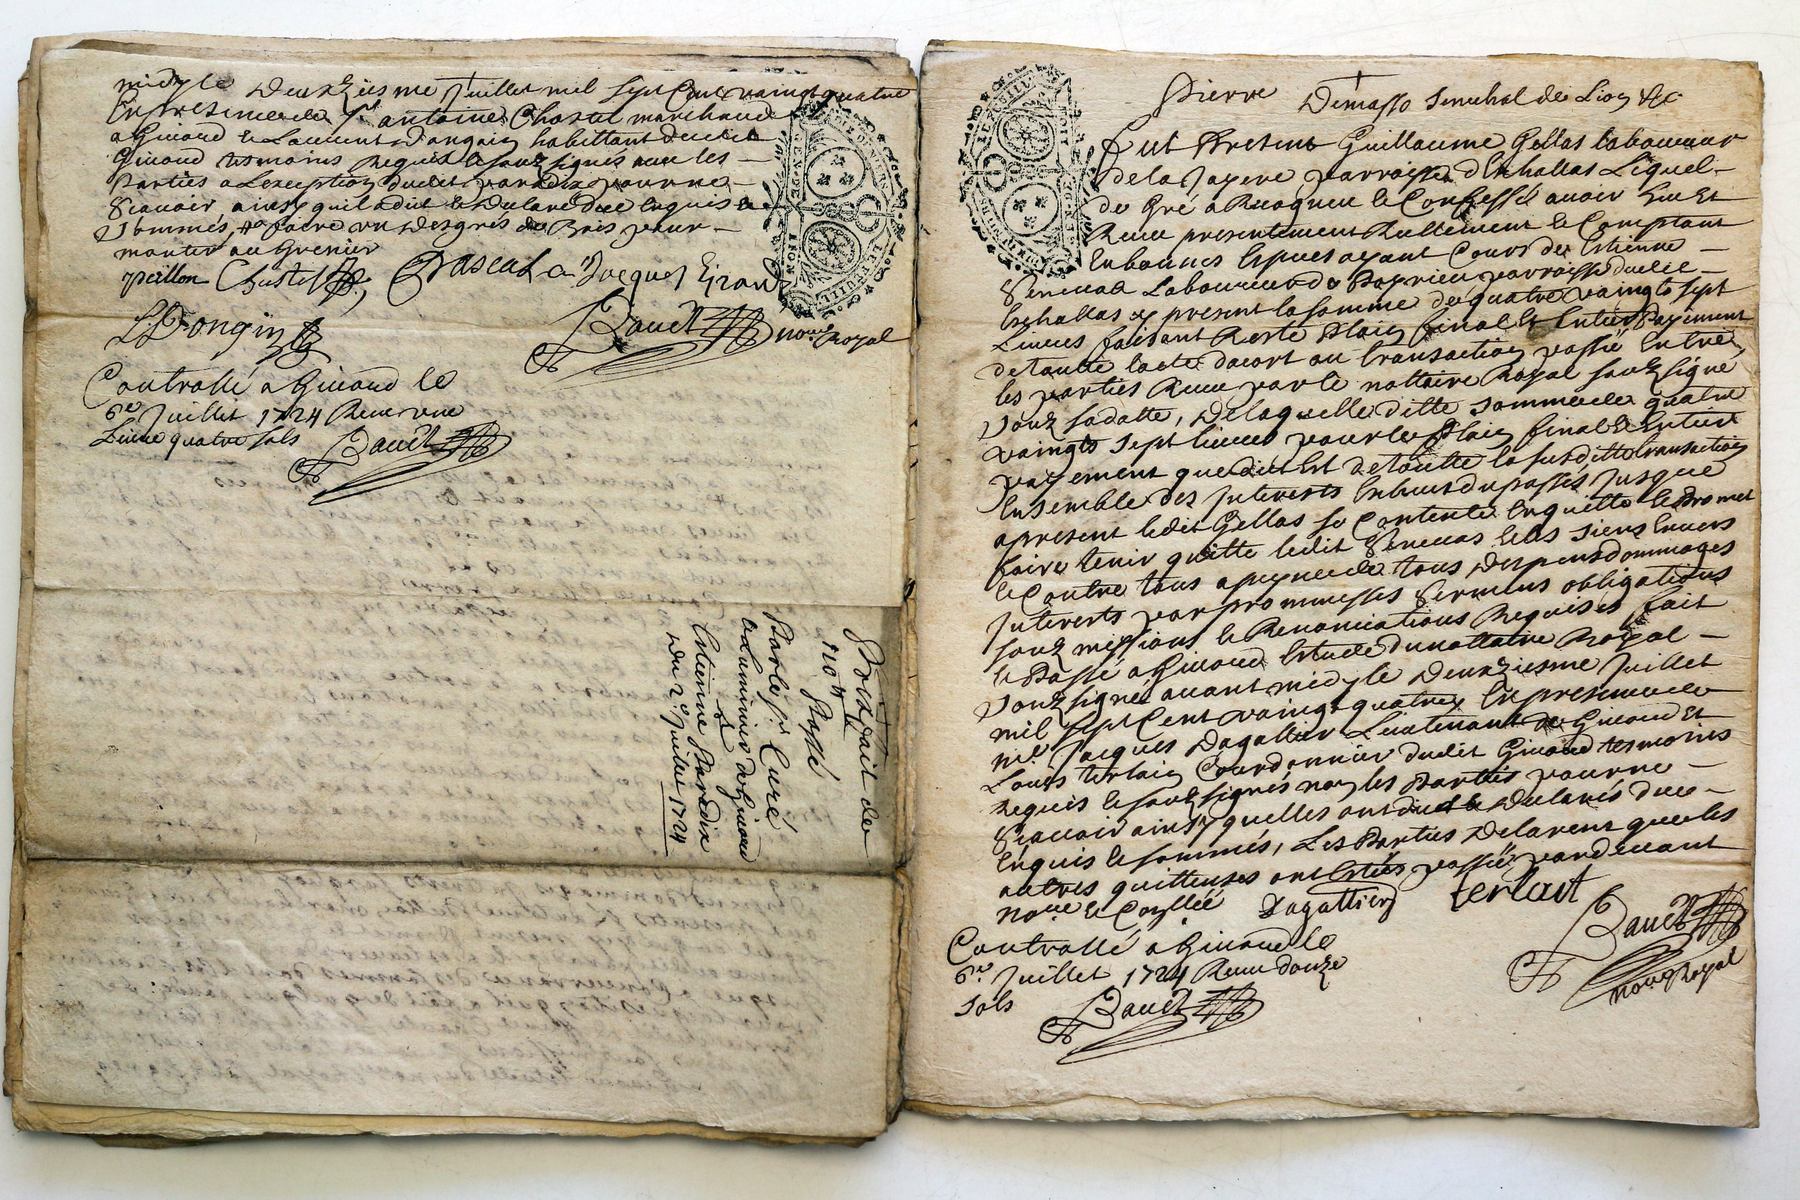 midy le Deuxziesme Juillet mil sept Cent vaingt quatre
En presence de Sr antoine Chastel marchand
a Giuaud & Laurent Dongin habittant dudit
Giuaud tesmoins Requis & soubzsignés auec les
Parties a Lexception dudit paradix pour ne
Scauoir ainsy quil a dit & Declaré duee Enquis &
Sommés, de faire un Desgrés de Bois pour
monter au Grenier
peillon Chastel Pascal Jacques Giraud
L Dongin
Bauet nore Royal
Controllé a Giuaud le
6e Juillet 1724 Receu une
Liure quatre sols
Bauet
Prixfait de
110 ll Passé
Par le sr Curé
a Luminaire de Giuaud
Estienne Paradix
du 2e Juillet 1724
Pierre Demasso Senechal de Lion &c
Fut Present Guillaume Gellas Laboureur
de la parroisse d'Eschallas Lequel
de Gré a Recogneu & Confessé auoir Eu Et
Receu presentement Reellement & Comptant
En bonnes Especes ayant Cours de Estienne
Laboureur de parroisse dudit
Eschallas cy present la somme de quatre vaingts sept
Liures faisant Reste Plain final & Entier Payement
de toutte lacte dacort ou transaction passé Entre
les parties Receu par le nottaire Royal soubzsigné
soubz sa datte, De laquelle ditte somme de quatre
vaingts sept liures pour les Plain final & Entier
payement que dit Est de toutte la susditte transaction
Ensemble des Interests Enbeus du passés Jusque
apresent ledit Gellas se Contente En quitte & Promet
faire tenir quitte ledit & les siens Enuers
& Contre tous a peyne de tous Despens dommages
Interests par promesses serments obligations
soubzmissions & Renonciations Requises fait
& Passé a Giuaud Estude du nottaire Royal
soubzsigné auant midy le Deuxziesme Juillet
mil sept Cent vaingt quatre En presence de
me Jacques Dagallier Lieutenant de Giuaud Et
Louis terlain Courdonnier dudit Giuaud tesmoins
Requis & soubzsignés non les Parties pour ne
Scauoir ainsy quelles ont dit & Declarés duee
Enquis & sommés, Les Parties Declarent que les
autres quittences ont Estées passées pardeuant
nore & Conseillé Dagallier terlait
Bauet
nore Royal
Controllé a Giuaud le
6e Juillet 1724 Receu douze
sols
Bauet